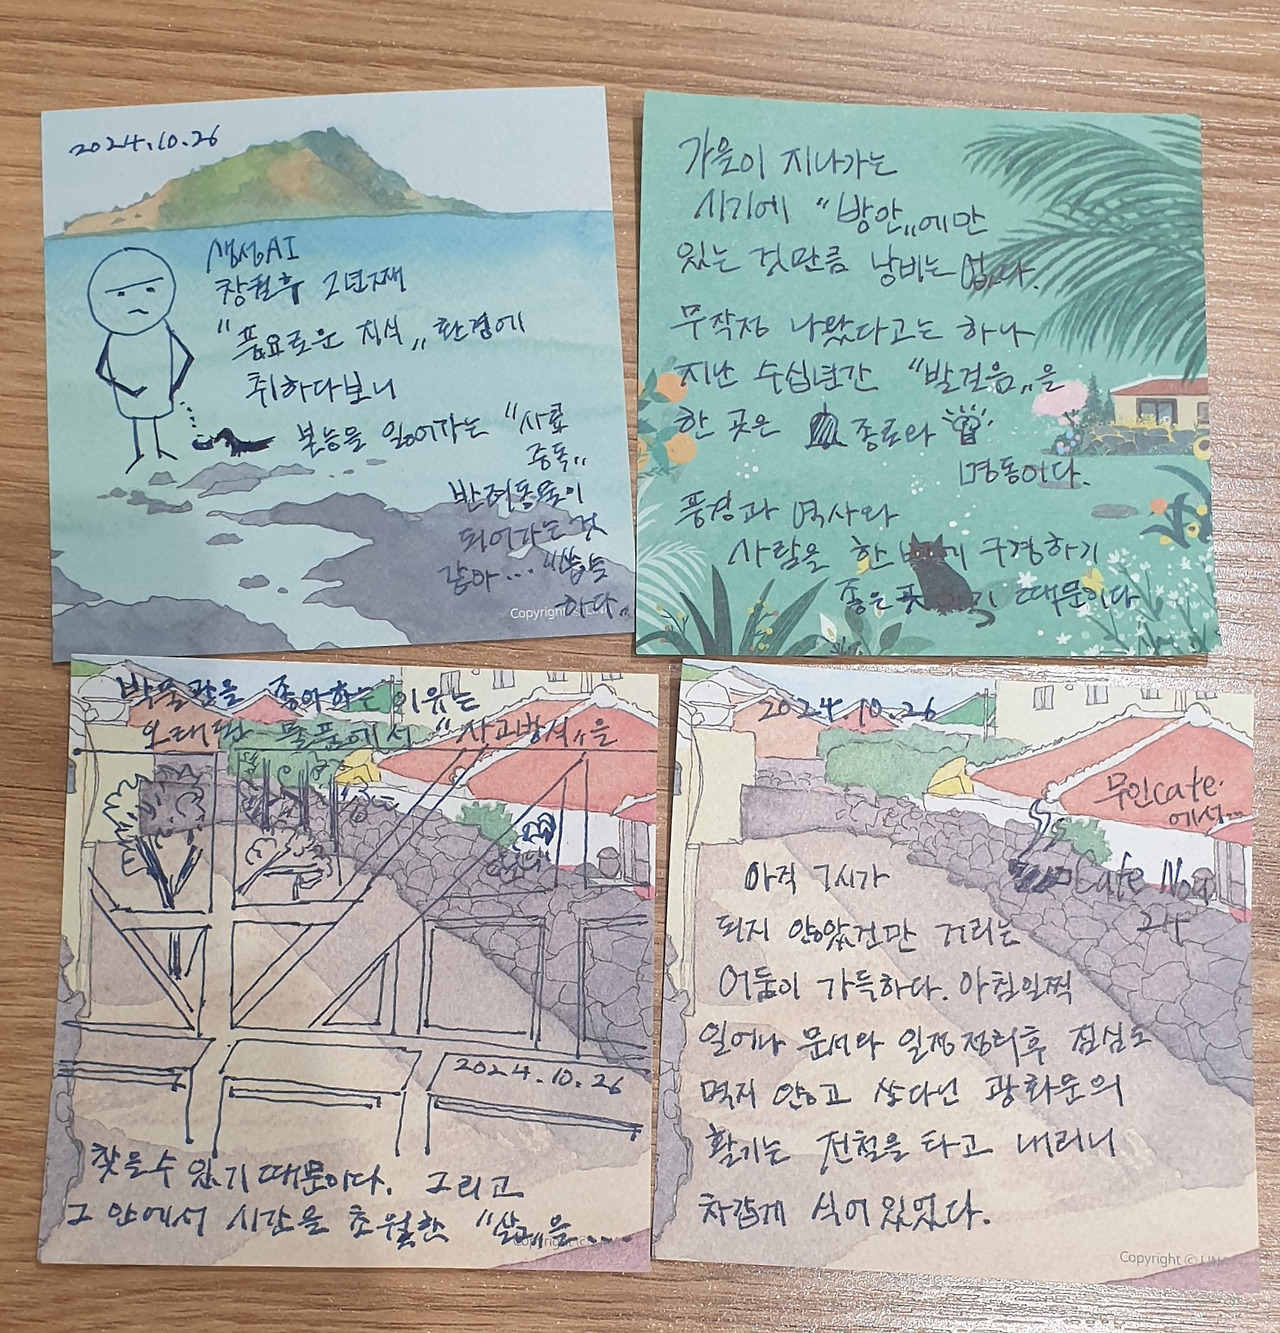 2024.10.26
생성AI
창궐후 2년째
"풍요로운 지식" 환경에
취하다보니
본능을 잃어가는 "사료
중독"
반려동물이
되어가는것
같아... "씁쓸
하다"
Copyright
가을이 지나가는
시기에 "방안"에만
있는 것만큼 낭비는 없다.
무작정 나왔다고는 하나
지난 수십년간 "발걸음"을
한 곳은 종로와
명동이다.
풍경과 역사와
사람을 한 번에 구경하기
좋은 곳이기 때문이다
박물관을 좋아하는 이유는
오래된 물품에서 "사고방식"을
2024.10.26
찾을수 있기 때문이다. 그리고
그 안에서 시간을 초월한 "삶"을....
2024.10.26
무인cafe.
에서...
Cafe No.
24
아직 7시가
되지 않았건만 거리는
어둠이 가득하다. 아침일찍
일어나 문서와 일정정리후 점심도
먹지 않고 쏘다닌 광화문의
활기는 전철을 타고 내리니
차갑게 식어있었다.
Copyright ©